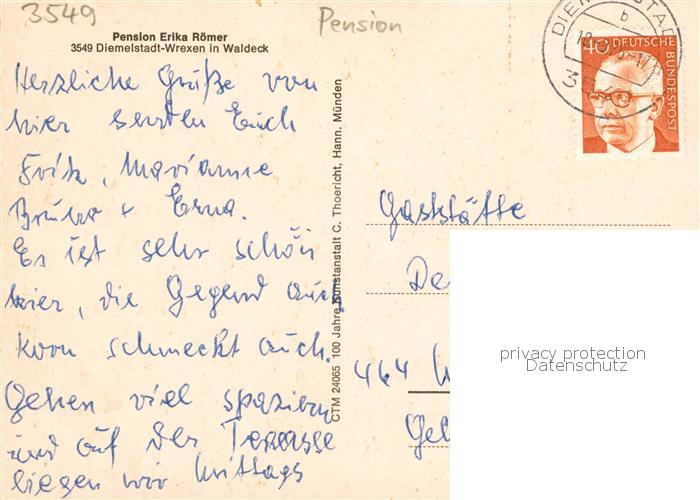 3549
Pension
Pension Erika Römer
3549 Diemelstadt-Wrexen in Waldeck
Herzliche Grüße von
hier senden Euch
Fritz, Marianne
Bruno + Erna.
Es ist sehr schön
hier, die Gegend auch
Korn schmeckt auch.
Gehen viel spazieren
und auf der Terasse
liegen wir Mittags
CTM 24065 100 Jahre Kunstanstalt C. Thoericht, Hann. Münden
DIEMELSTADT
b
3549
40 DEUTSCHE
BUNDESPOST
Gaststätte
De
464 W
Gel
privacy protection
Datenschutz